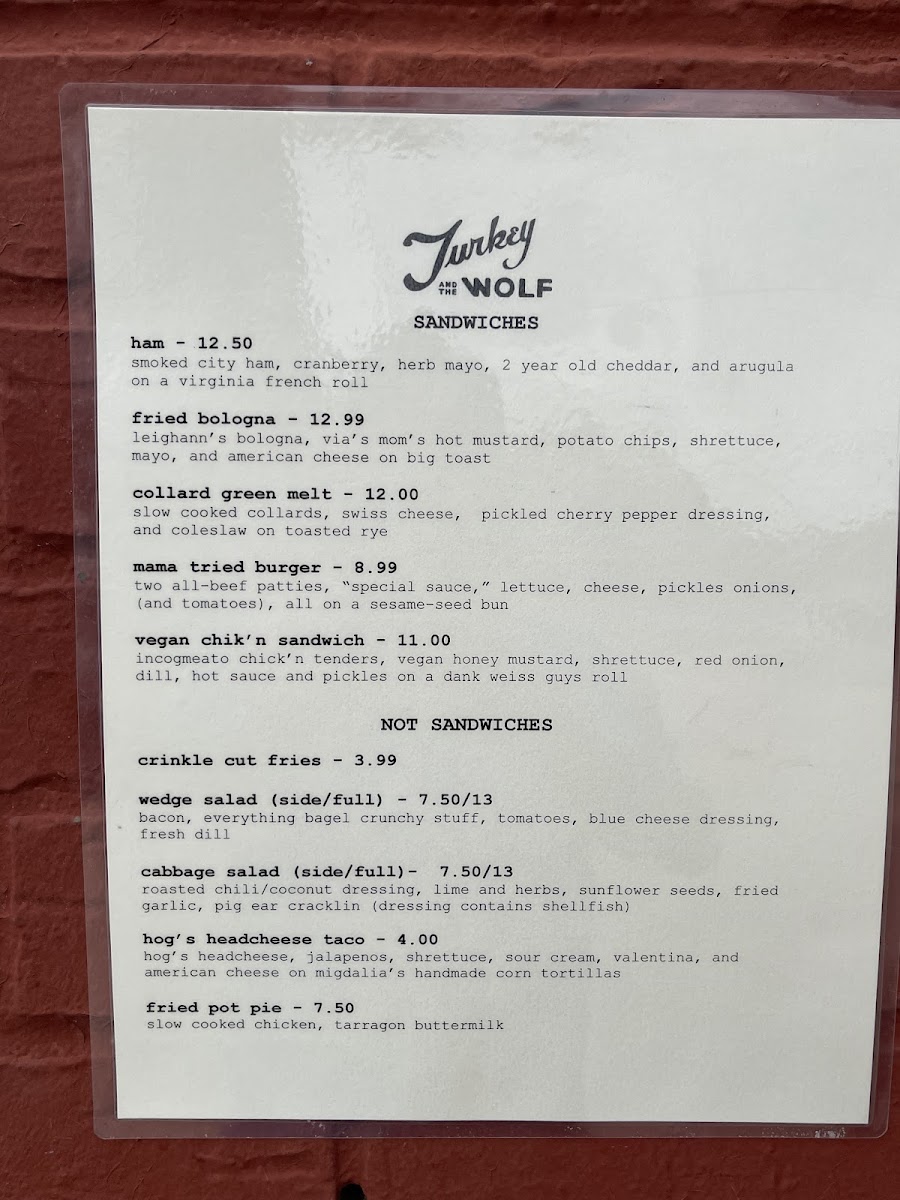 Turkey
AND THE WOLF
SANDWICHES
ham - 12.50
smoked city ham, cranberry, herb mayo, 2 year old cheddar, and arugula
on a virginia french roll
fried bologna - 12.99
leighann's bologna, via's mom's hot mustard, potato chips, shrettuce,
mayo, and american cheese on big toast
collard green melt - 12.00
slow cooked collards, swiss cheese,  pickled cherry pepper dressing,
and coleslaw on toasted rye
mama tried burger - 8.99
two all-beef patties, “special sauce,” lettuce, cheese, pickles onions,
(and tomatoes), all on a sesame-seed bun
vegan chik'n sandwich - 11.00
incogmeato chick'n tenders, vegan honey mustard, shrettuce, red onion,
dill, hot sauce and pickles on a dank weiss guys roll
NOT SANDWICHES
crinkle cut fries - 3.99
wedge salad (side/full) - 7.50/13
bacon, everything bagel crunchy stuff, tomatoes, blue cheese dressing,
fresh dill
cabbage salad (side/full)-  7.50/13
roasted chili/coconut dressing, lime and herbs, sunflower seeds, fried
garlic, pig ear cracklin (dressing contains shellfish)
hog's headcheese taco - 4.00
hog's headcheese, jalapenos, shrettuce, sour cream, valentina, and
american cheese on migdalia's handmade corn tortillas
fried pot pie - 7.50
slow cooked chicken, tarragon buttermilk